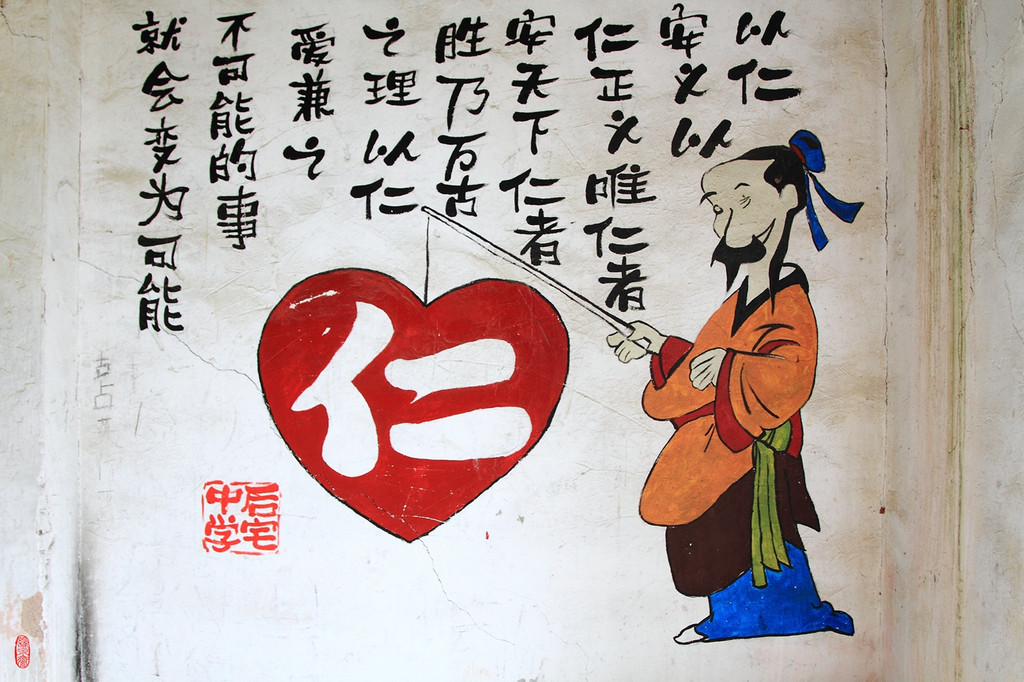 以仁
安义以
仁正义唯仁者
安天下仁者
胜乃万古
之理以仁
爱兼之
不可能的事
就会变为可能
仁
后宅
中学